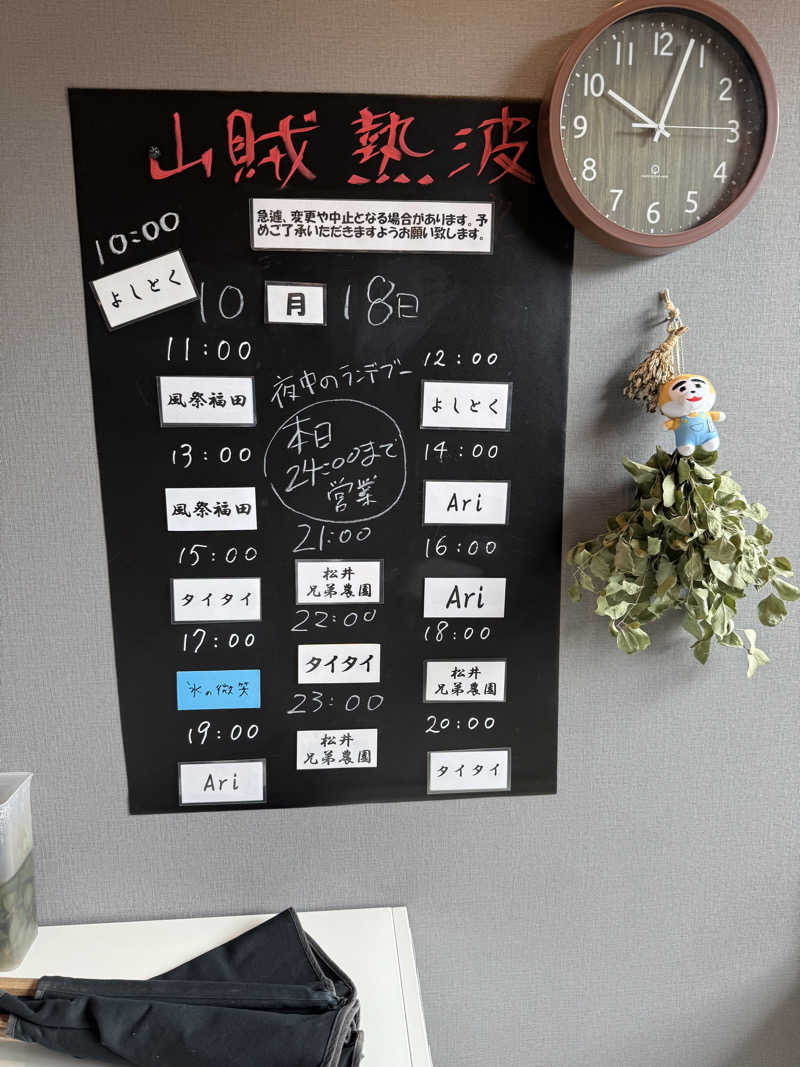 山賊熱波
急遽、変更や中止となる場合があります。予
めご了承いただきますようお願い致します。
10:00
よしとく
10月18日
11:00
風祭福田
13:00
風祭福田
15:00
タイタイ
17:00
氷の微笑
19:00
Ari
夜中のランデブー
本日
24:00まで
営業
21:00
松井
兄弟農園
22:00
タイタイ
23:00
松井
兄弟農園
12:00
よしとく
14:00
Ari
16:00
Ari
18:00
松井
兄弟農園
20:00
タイタイ
12
1
2
3
4
5
6
7
8
9
10
11